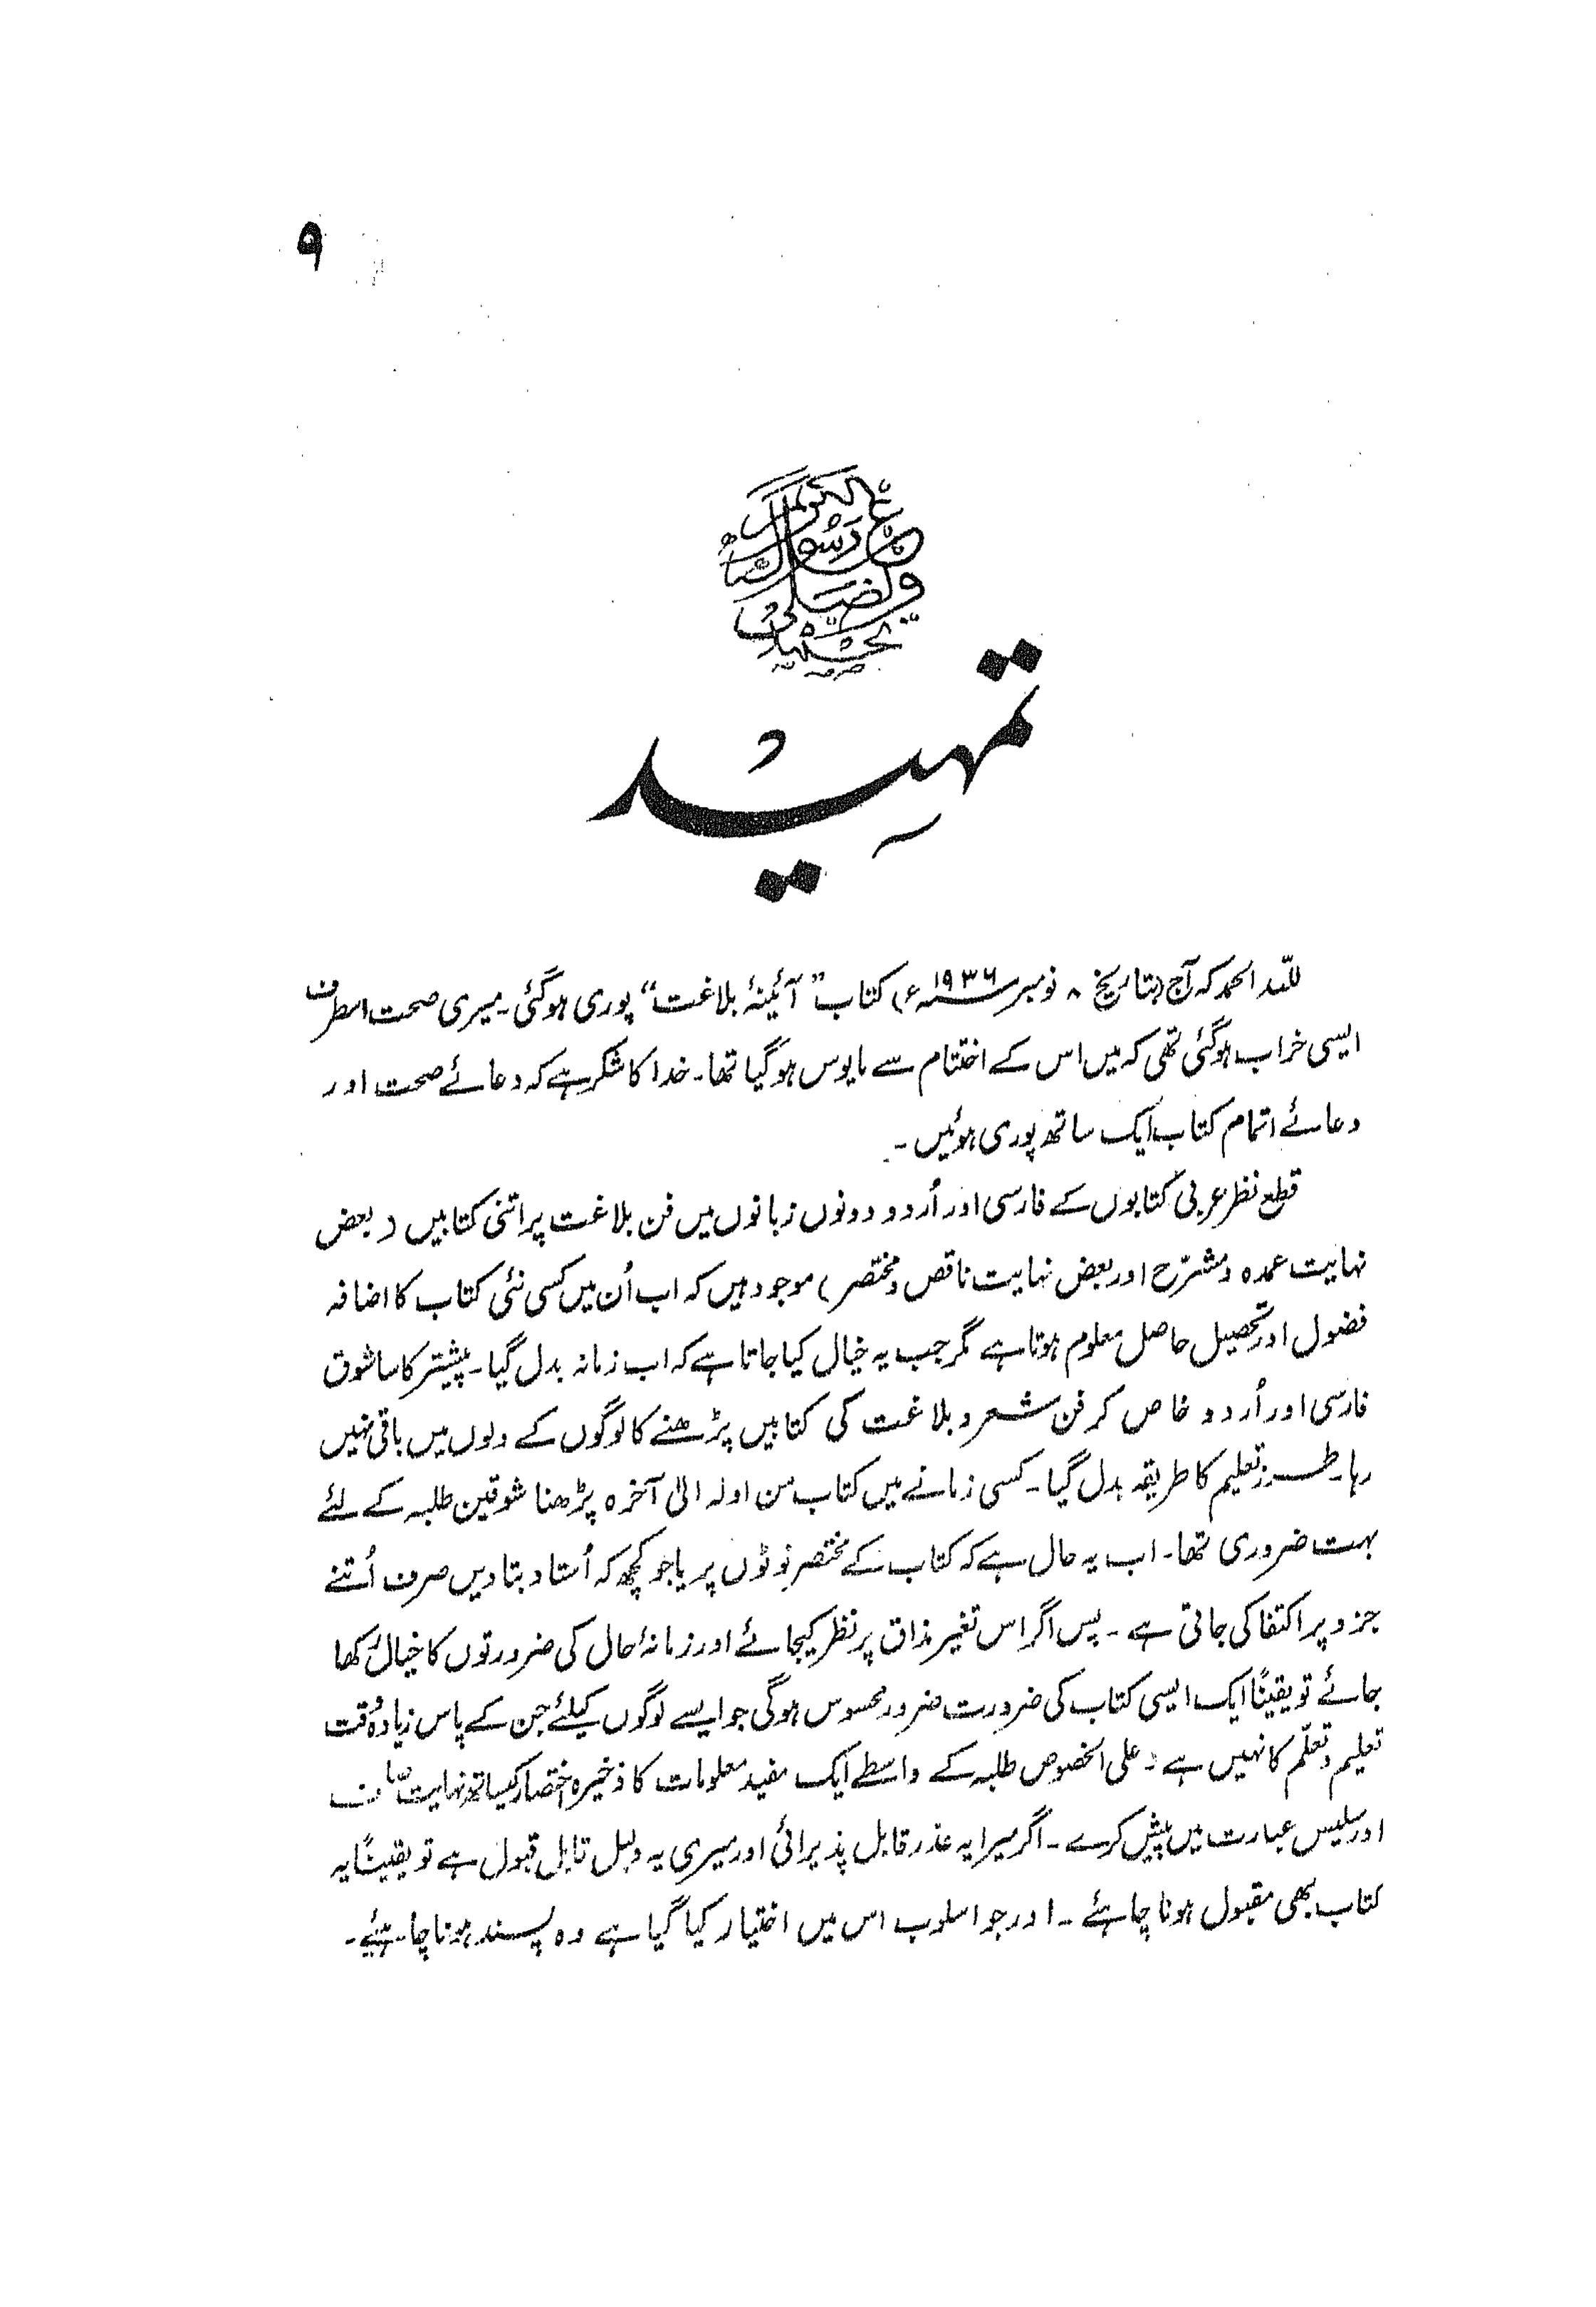 ۹
نحمدہ ونصلی علی رسولہ الکریم
تمہید
للّٰہ الحمد کہ آج (بتاریخ ۸ نومبر ۱۹۳۶ء) کتاب ”آئینۂ بلاغت“ پوری ہوگئی۔ میری صحت اسطرف
ایسی خراب ہوگئی تھی کہ میں اس کے اختتام سے مایوس ہوگیا تھا۔ خدا کا شکر ہے کہ دعائے صحت اور
دعائے اتمام کتاب ایک ساتھ پوری ہوئیں۔
قطع نظر عربی کتابوں کے فارسی اور اُردو دونوں زبانوں میں فن بلاغت پر اتنی کتابیں (بعض
نہایت عمدہ و مشرّح اور بعض نہایت ناقص و مختصر) موجود ہیں کہ اب اُن میں کسی نئی کتاب کا اضافہ
فضول اور تحصیل حاصل معلوم ہوتا ہے مگر جب یہ خیال کیا جاتا ہے کہ اب زمانہ بدل گیا۔ پیشتر کا سا شوق
فارسی اور اُردو خاص کر فن شعر و بلاغت کی کتابیں پڑھنے کا لوگوں کے دلوں میں باقی نہیں
رہا۔ طرز تعلیم کا طریقہ بدل گیا۔ کسی زمانے میں کتاب من اولہ الیٰ آخرہ پڑھنا شوقین طلبہ کے لئے
بہت ضروری تھا۔ اب یہ حال ہے کہ کتاب کے مختصر نوٹوں پر یا جو کچھ کہ اُستاد بتا دیں صرف اُتنے
جزو پر اکتفا کی جاتی ہے۔ پس اگر اس تغیر مذاق پر نظر کیجائے اور زمانۂ حال کی ضرورتوں کا خیال رکھا
جائے تو یقیناً ایک ایسی کتاب کی ضرورت ضرور محسوس ہوگی جو ایسے لوگوں کیلئے جن کے پاس زیادہ وقت
تعلیم و تعلّم کا نہیں ہے (علی الخصوص طلبہ کے واسطے ایک مفید معلومات کا ذخیرہ اختصار کیساتھ نہایت صاف
اور سلیس عبارت میں پیش کرے۔ اگر میرا یہ عذر قابل پذیرائی اور میری یہ دلیل قابل قبول ہے تو یقیناً یہ
کتاب بھی مقبول ہونا چاہئے۔ اور جو اسلوب اس میں اختیار کیا گیا ہے وہ پسند ہونا چاہیئے۔